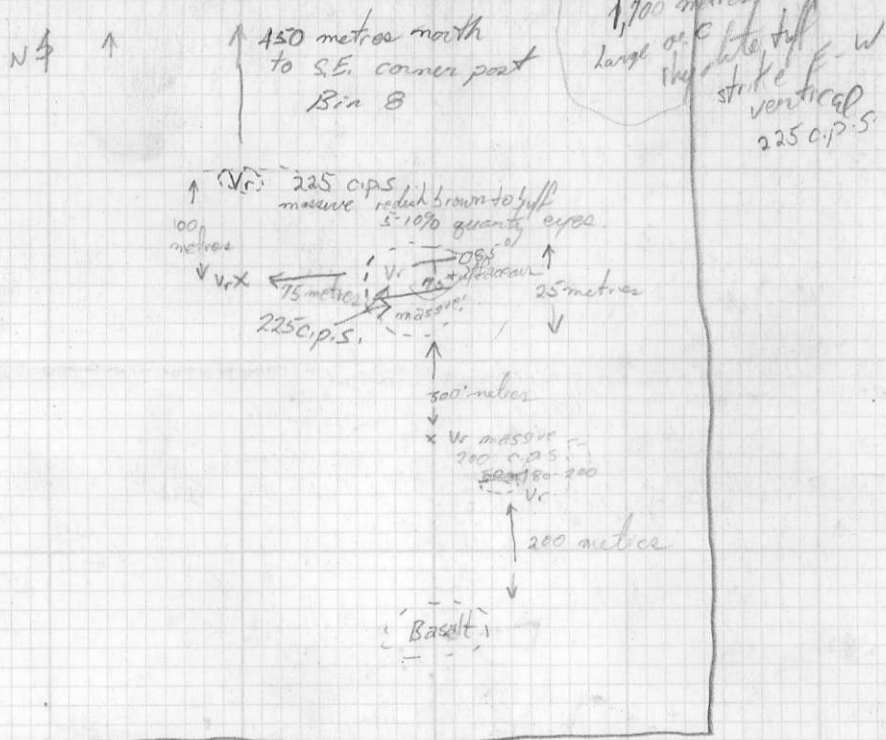 N
450 metres north
to S.E. corner post
Bin 8
1,700 metres
Large o/c
rhyolite tuff
strike E-W
vertical
225 c.p.s.
Vr 225 c.p.s
massive redish brown to buff
5-10% quartz eyes.
metres
Vr X
75 metres
225 c.p.s.
Vr
085°
75°
tuffaceous
massive
25 metres
300 metres
x Vr massive
200 c.p.s
180-200
Vr
200 metres
Basalt